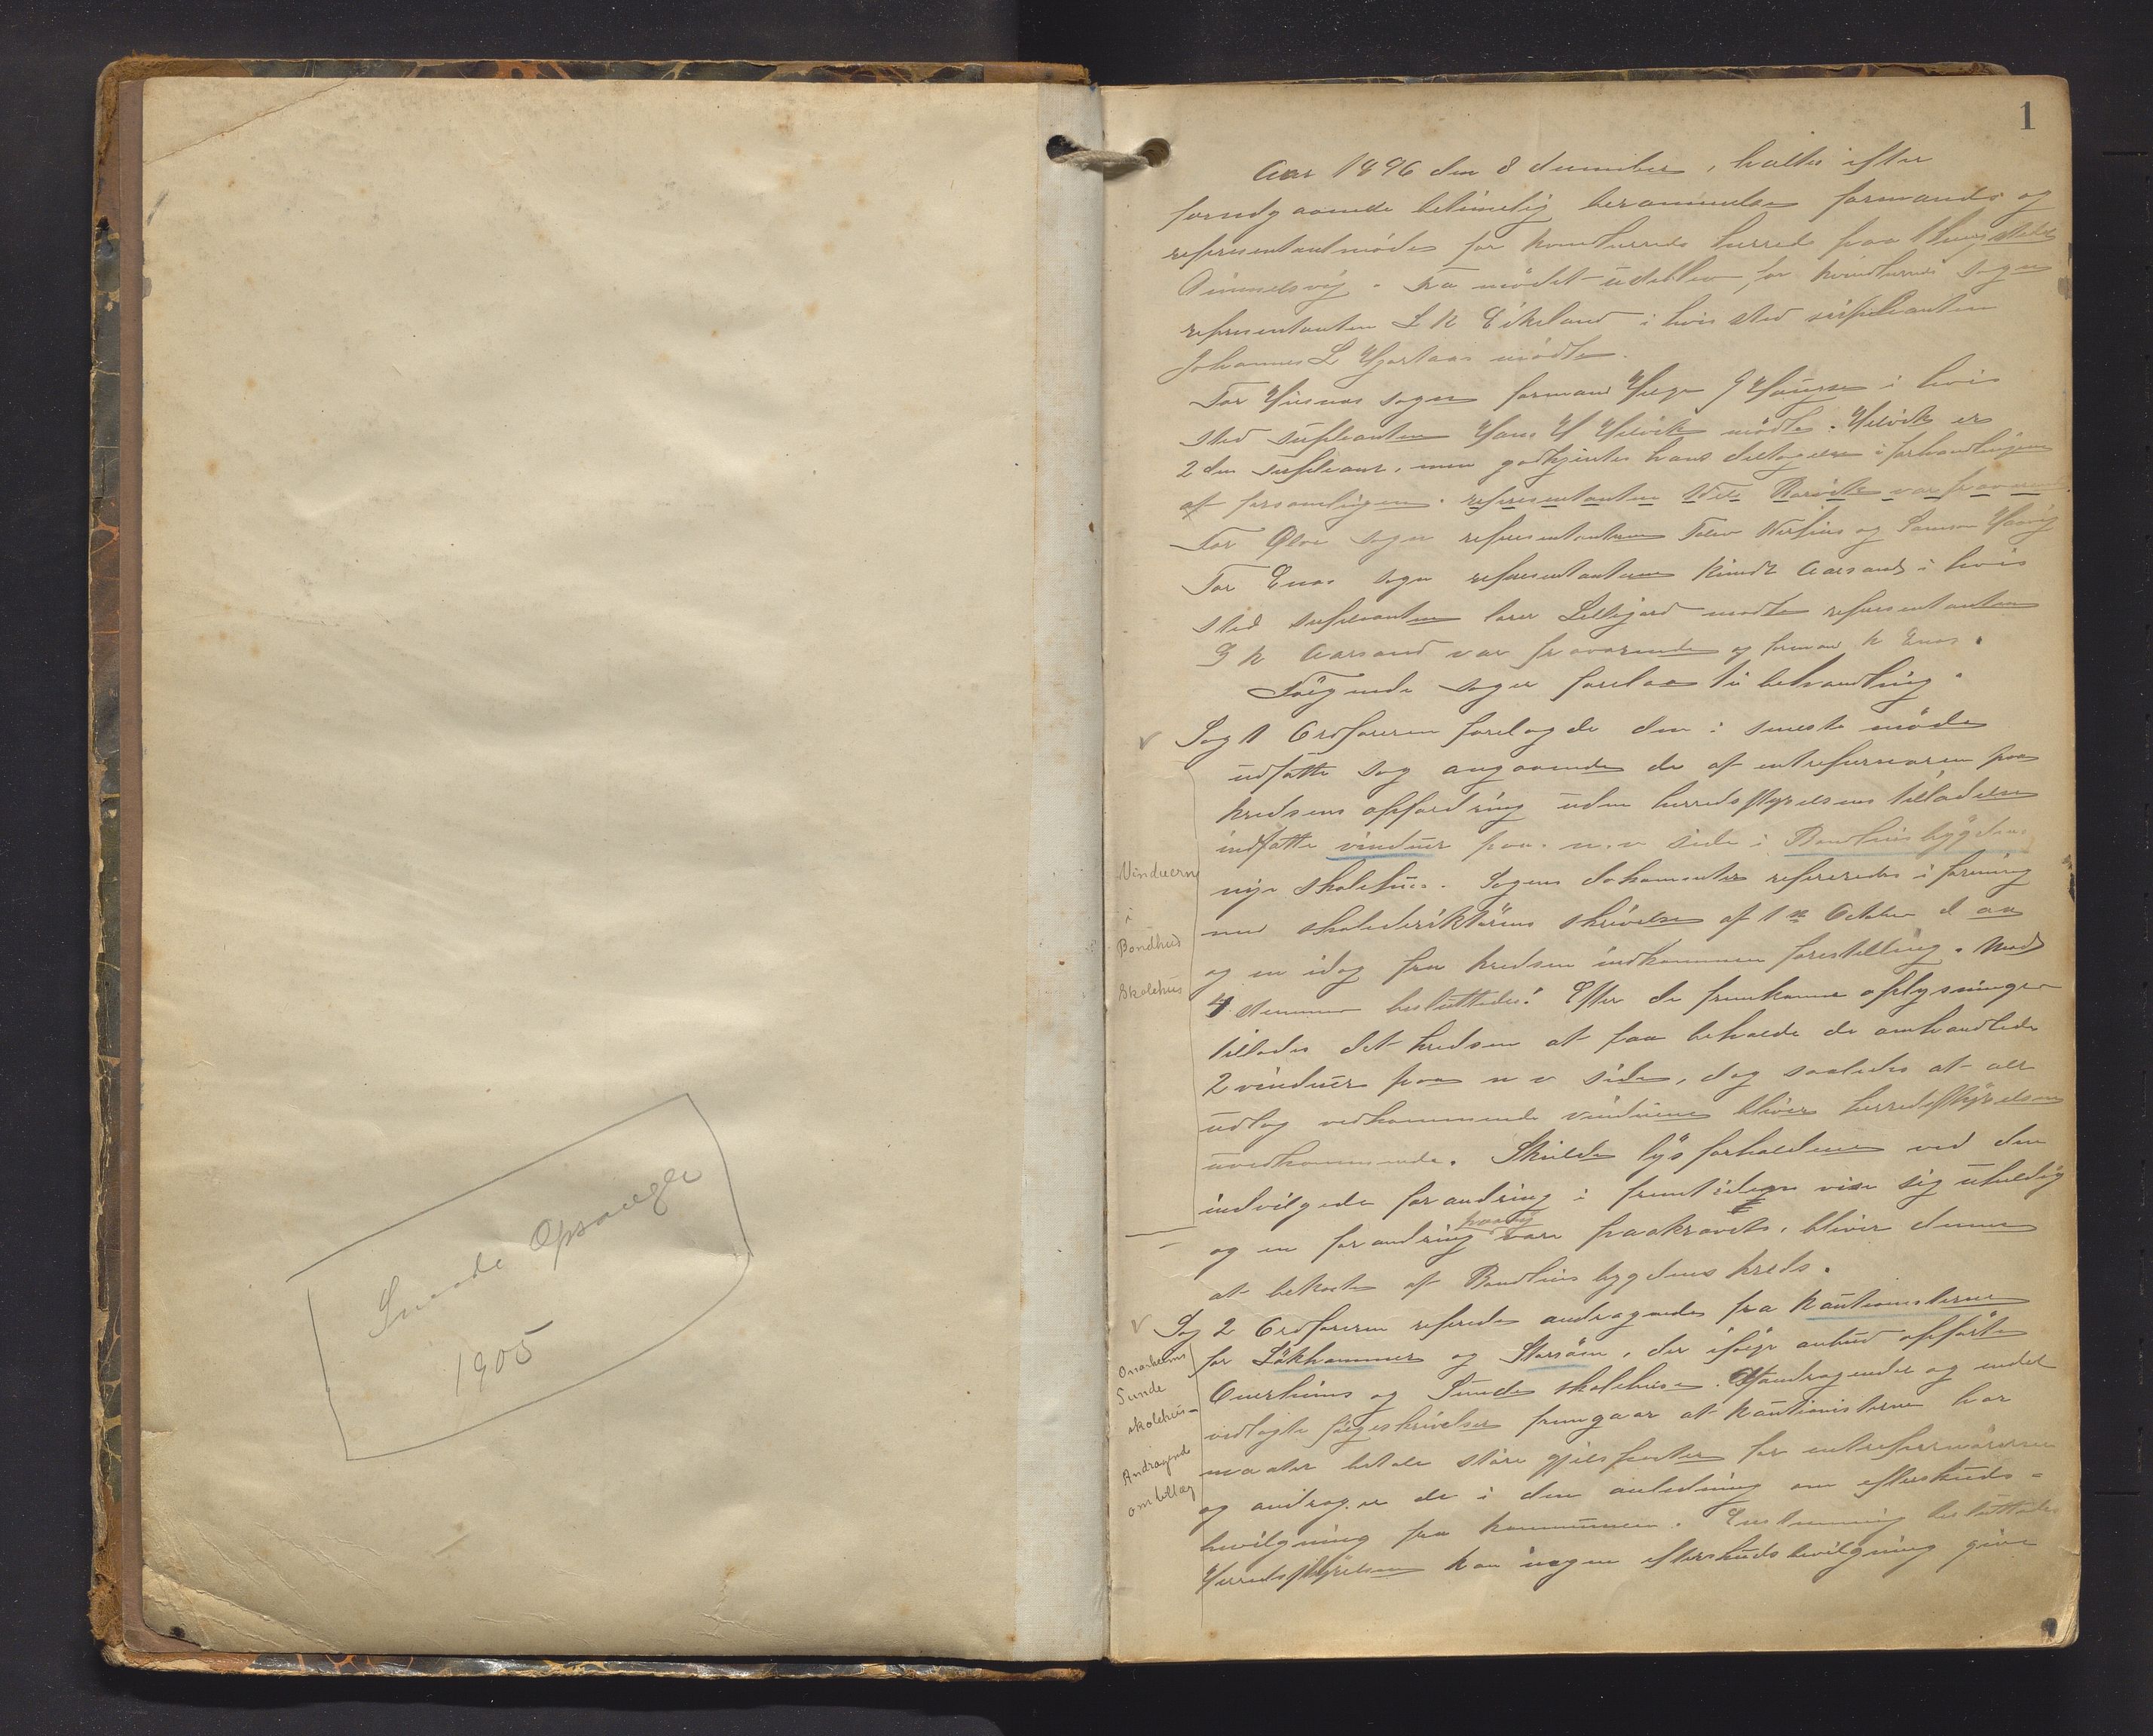 Snaade Opsange
1905
1
Aar 1896 den 8 december, holtes efter
forudgaaende betimelig berammelse formands og
representantmöde for kvindherreds herred paa thingstedet
Rimmelsvig. Fra mödet udeblev, for kvindherreds sogn
representanten L K Eikeland i hvis sted supleanten
Johannes L Hjortaas mödte.
For Husnes sogn formand Helge J Hauge i hvis
sted supleanten Hans H Helvik mödte. Helvik er
2den supleant, men godkjentes hans deltagelse i forhandlingene
af forsamlingen. representanten Rørvik var fraværende.
For Ølve sogn representanterne Tolev Nerhus og Samson Haavig
For Enæs sogn representanten Knudt Aarsand i hvis
sted supleanten lærer Lillegjerd mødte representanten
G K Aarsand var fraværende og formand K Enæs.
Følgende sager forelaa til behandling.
Sag 1 Ordføreren forelagde den i seneste møde
udsatte sag angaaende de af entreprenøren paa
kredsens opfordring uden herredsstyrelsens tilladelse
indsatte vinduer paa n.v side i Bondhusbygdens
nye skolehus. Sagens dokumenter refereredes i forening
med skoledirektørens skrivelse af 1ste Oktober d aa
og en idag fra kredsen indkommen forestilling. Med
4 stemmer besluttedes: Efter de fremkomne oplysninger
tillades det kredsen at faa beholde de omhandlede
2 vinduer paa n v side, dog saaledes at alt
udlæg vedkommende vinduerne bliver herredsstyrelsen
uvedkommende. Skulde lysforholdene ved den
indvilgede forandring i fremtiden vise sig uheldig
og en forandring paany være paakrævet, bliver denne
at bekoste af Bondhusbygdens kreds.
Sag 2 Ordføreren referede andragende fra kautionisterne
for Lökhammer og Storsøen, der ifølge anbud opførte
Onerheims og Sunde skolehuse. Af andragendet og endel
vedlagte følgeskrivelser fremgaar at kautionisterne har
maatet betale store gjelsposter for entreprenørerne
og andrager de i den anledning om efterskuds-
bevilgning fra kommunen. Enstemmig besluttedes
Herredsstyrelsen kan ingen efterskudsbevilgning give
Vinduerne
i
Bondhus
Skolehus
Onarheims
Sunde
skolehus-
Andragende
om tillæg